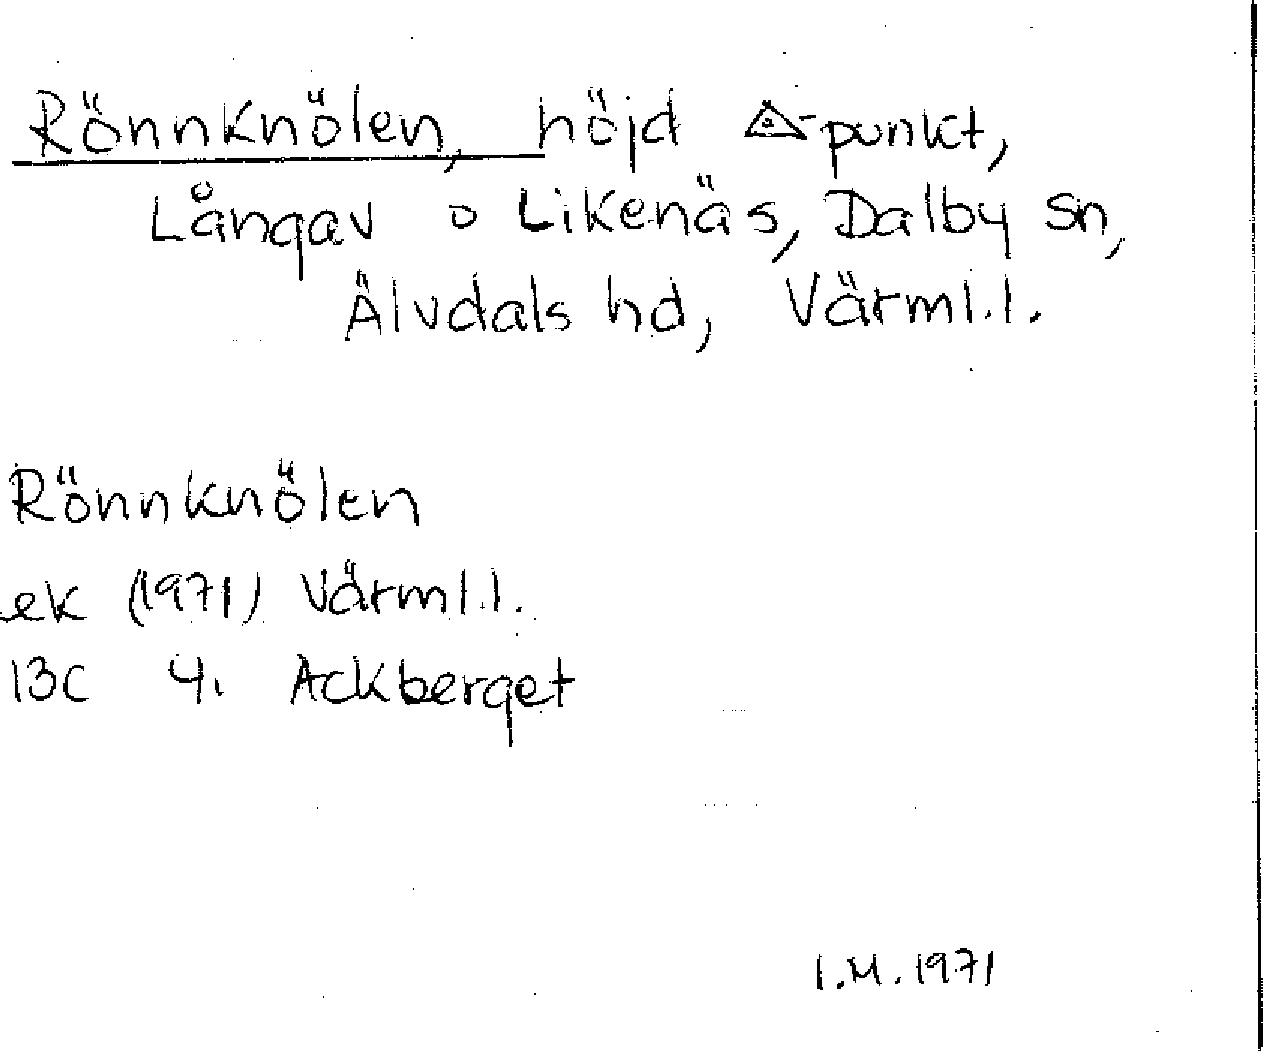 Rönnknölen, höjd △-punkt,
Långav o Likenäs, Dalby sn,
Älvdals hd, Värml.l.
Rönnknölen
ek (1971) Värml.l.
13C 4. Ackberget
I.M. 1971